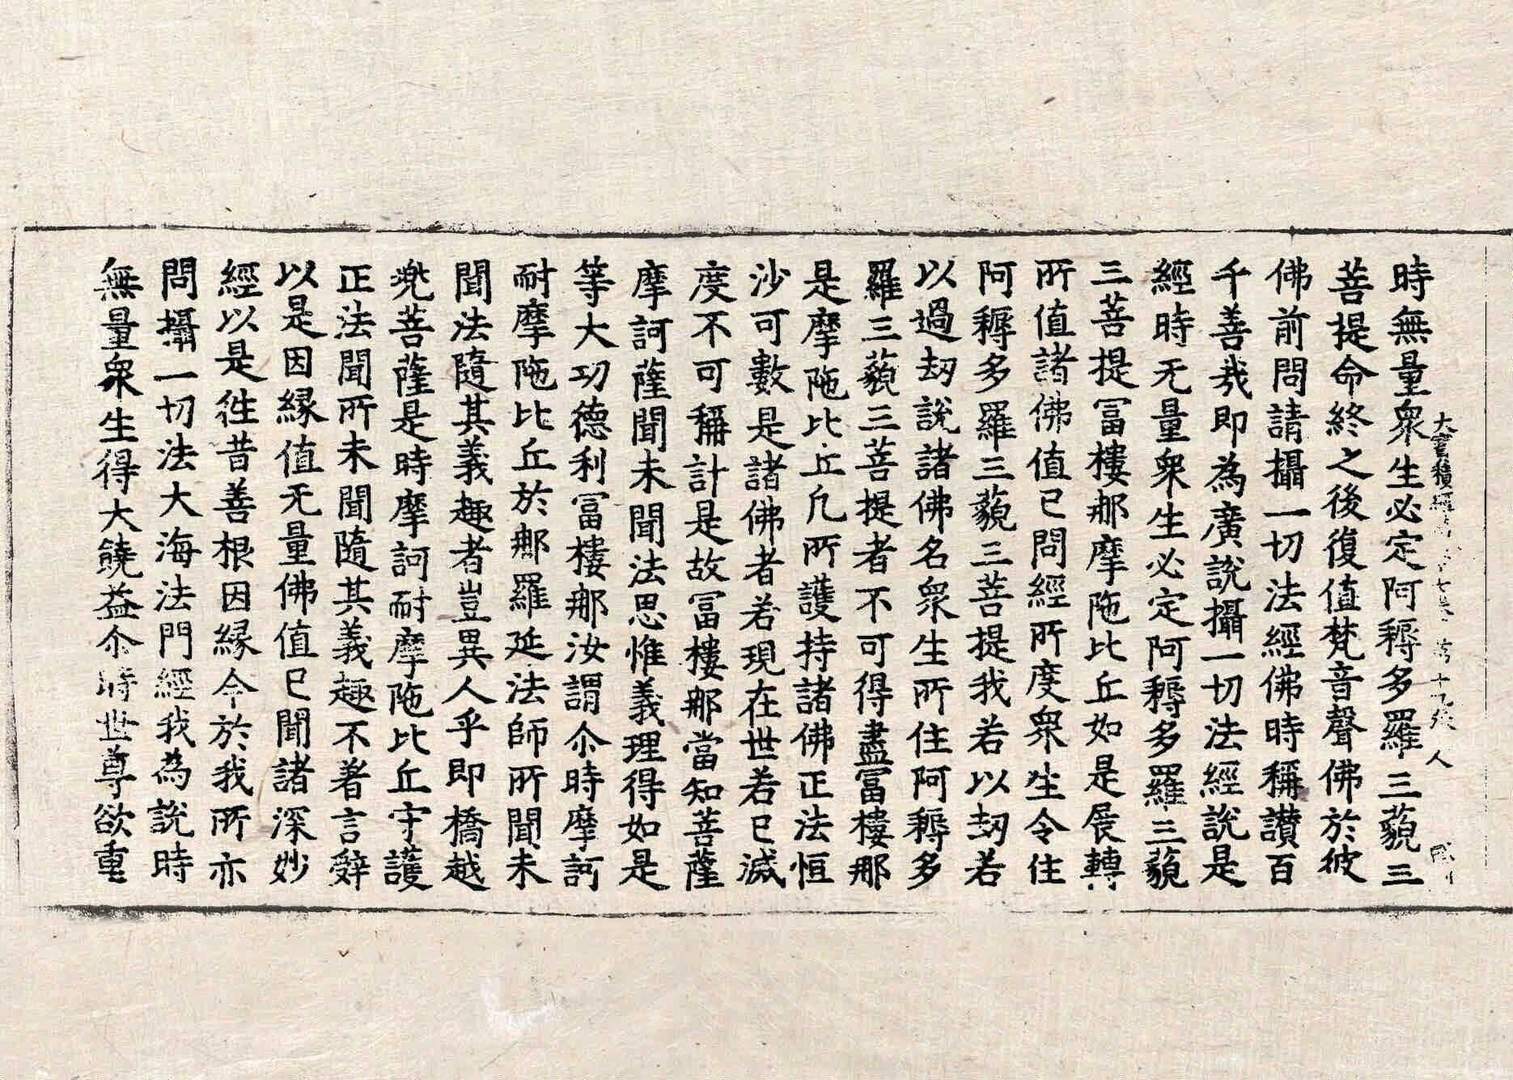 時無量衆生必定阿耨多羅三藐三
菩提命終之後復值梵音聲佛於彼
佛前問請攝一切法經佛時稱讃百
千善㢤即為廣說攝一切法經說是
經時无量衆生必定阿耨多羅三藐
三菩提冨樓那摩陁比丘如是展轉
所值諸佛值已問經所度衆生令住
阿耨多羅三藐三菩提我若以刼若
以過刼說諸佛名衆生所住阿耨多
羅三藐三菩提者不可得盡冨樓那
是摩陁比丘凢所護持諸佛正法恒
沙可數是諸佛者若現在世若已滅
度不可稱計是故冨樓那當知菩薩
摩訶薩聞未聞法思惟義理得如是
等大功德利冨樓那汝謂尒時摩訶
耐摩陁比丘於那羅延法師所聞未
聞法隨其義趣者豈異人乎即橋越
兠菩薩是時摩訶耐摩陁比丘守護
正法聞所未聞隨其義趣不著言辤
以是因縁值无量佛值已聞諸深妙
經以是徃昔善根因縁今於我所亦
問攝一切法大海法門經我為說時
無量衆生得大饒益尒時世尊欲重
大寳積經 七 第十九張 人